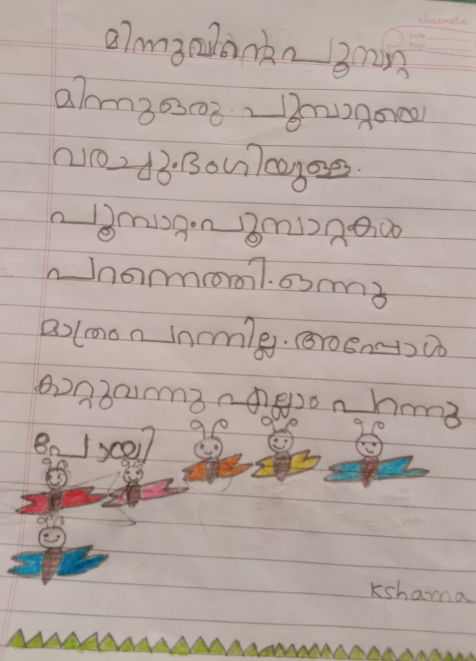 classmate
Date
Page
മിന്നുവിന്റെ പൂമ്പാറ്റ
മിന്നു ഒരു. പൂമ്പാറ്റയെ
വരച്ചു. ഭംഗിയുള്ള.
പൂമ്പാറ്റ. പൂമ്പാറ്റകൾ
പറന്നെത്തി. ഒന്നു
മാത്രം പറന്നില്ല. അപ്പോൾ
കാറ്റുവന്നു എല്ലാം പറന്നു
പോയി
Kshama